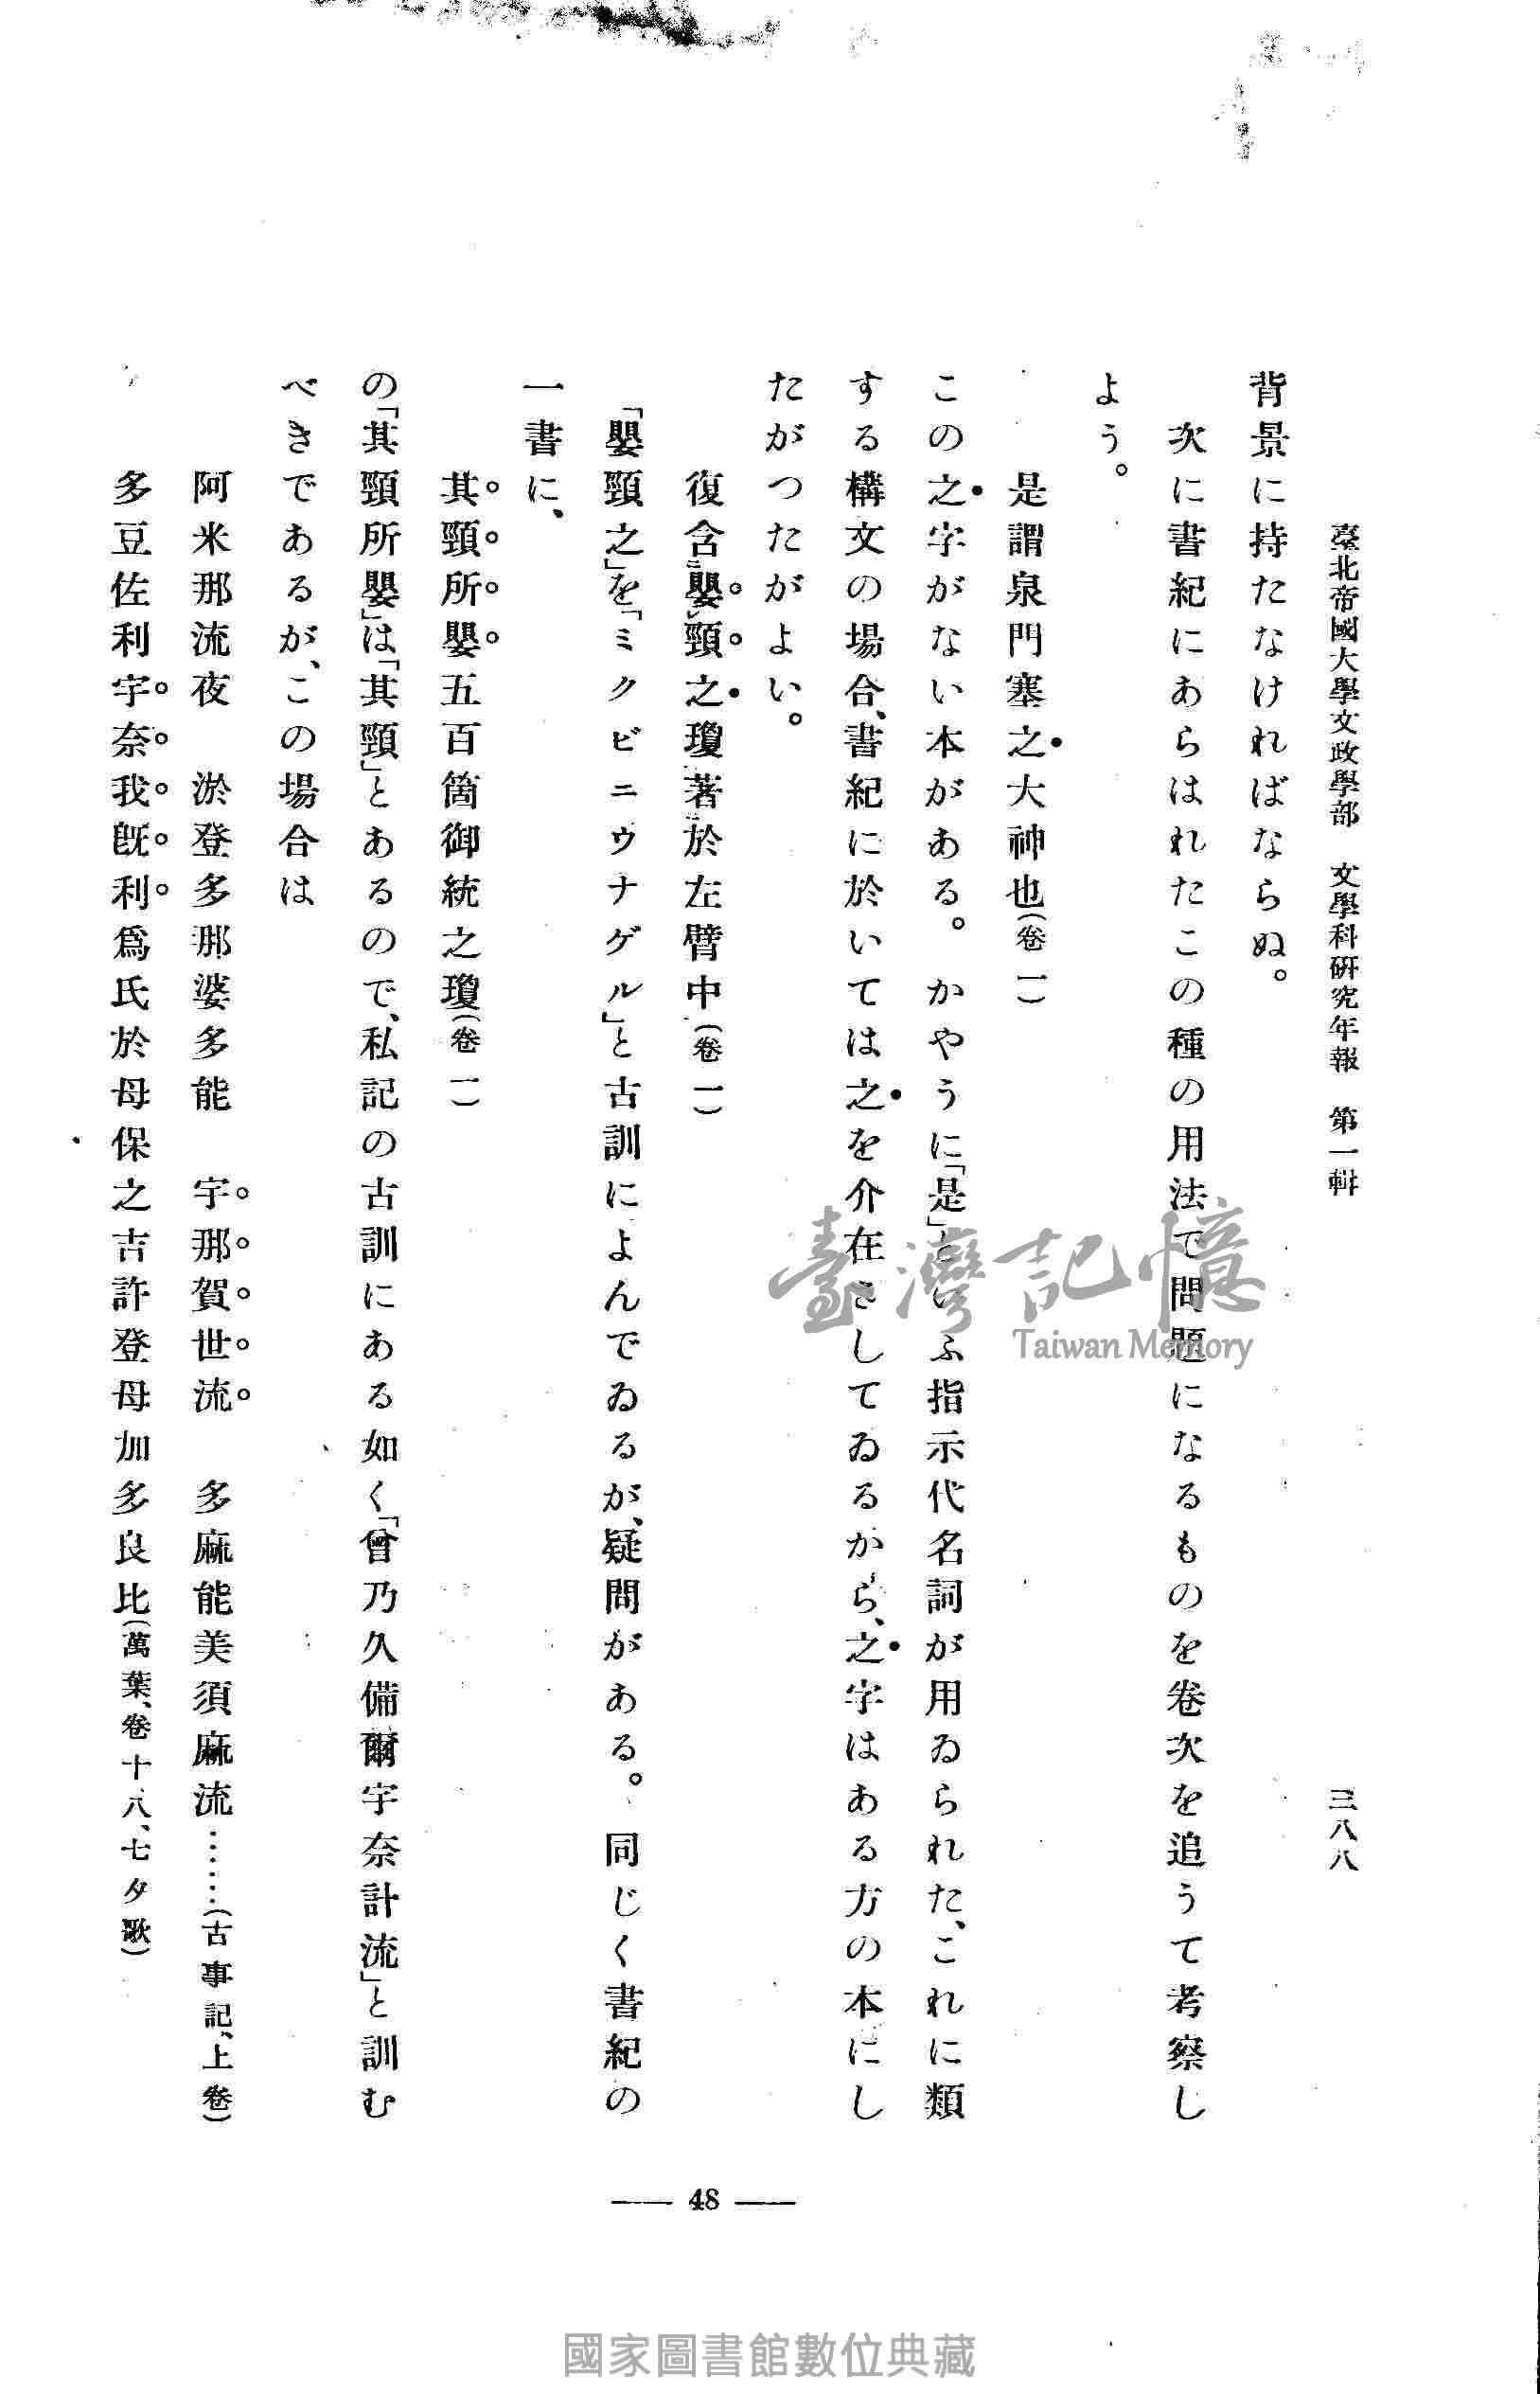 臺北帝國大學文政學部　文學科研究年報　第一輯　三八八
背景に持たなければならぬ。
次に書紀にあらはれたこの種の用法で問題になるものを卷次を追うて考察し
よう。
是謂泉門塞之大神也(卷一)
この之字がない本がある。かやうに「是」といふ指示代名詞が用ゐられた、これに類
する構文の場合、書紀に於いては之を介在さしてゐるから、之字はある方の本にし
たがつたがよい。
復含嬰頸之瓊著於左臂中(卷一)
「嬰頸之」を「ミクビニウナゲル」と古訓によんでゐるが、疑問がある。同じく書紀の
一書に、
其頸所嬰五百箇御統之瓊(卷一)
の「其頸所嬰」は「其頸」とあるので、私記の古訓にある如く「曾乃久備爾宇奈計流」と訓む
べきであるが、この場合は
阿米那流夜　淤登多那婆多能　宇那賀世流　多麻能美須麻流……(古事記、上卷)
多豆佐利宇奈我既利爲氏於母保之吉許登母加多良比(萬葉、卷十八、七夕歌)
— 48 —
臺灣記憶
Taiwan Memory
國家圖書館數位典藏